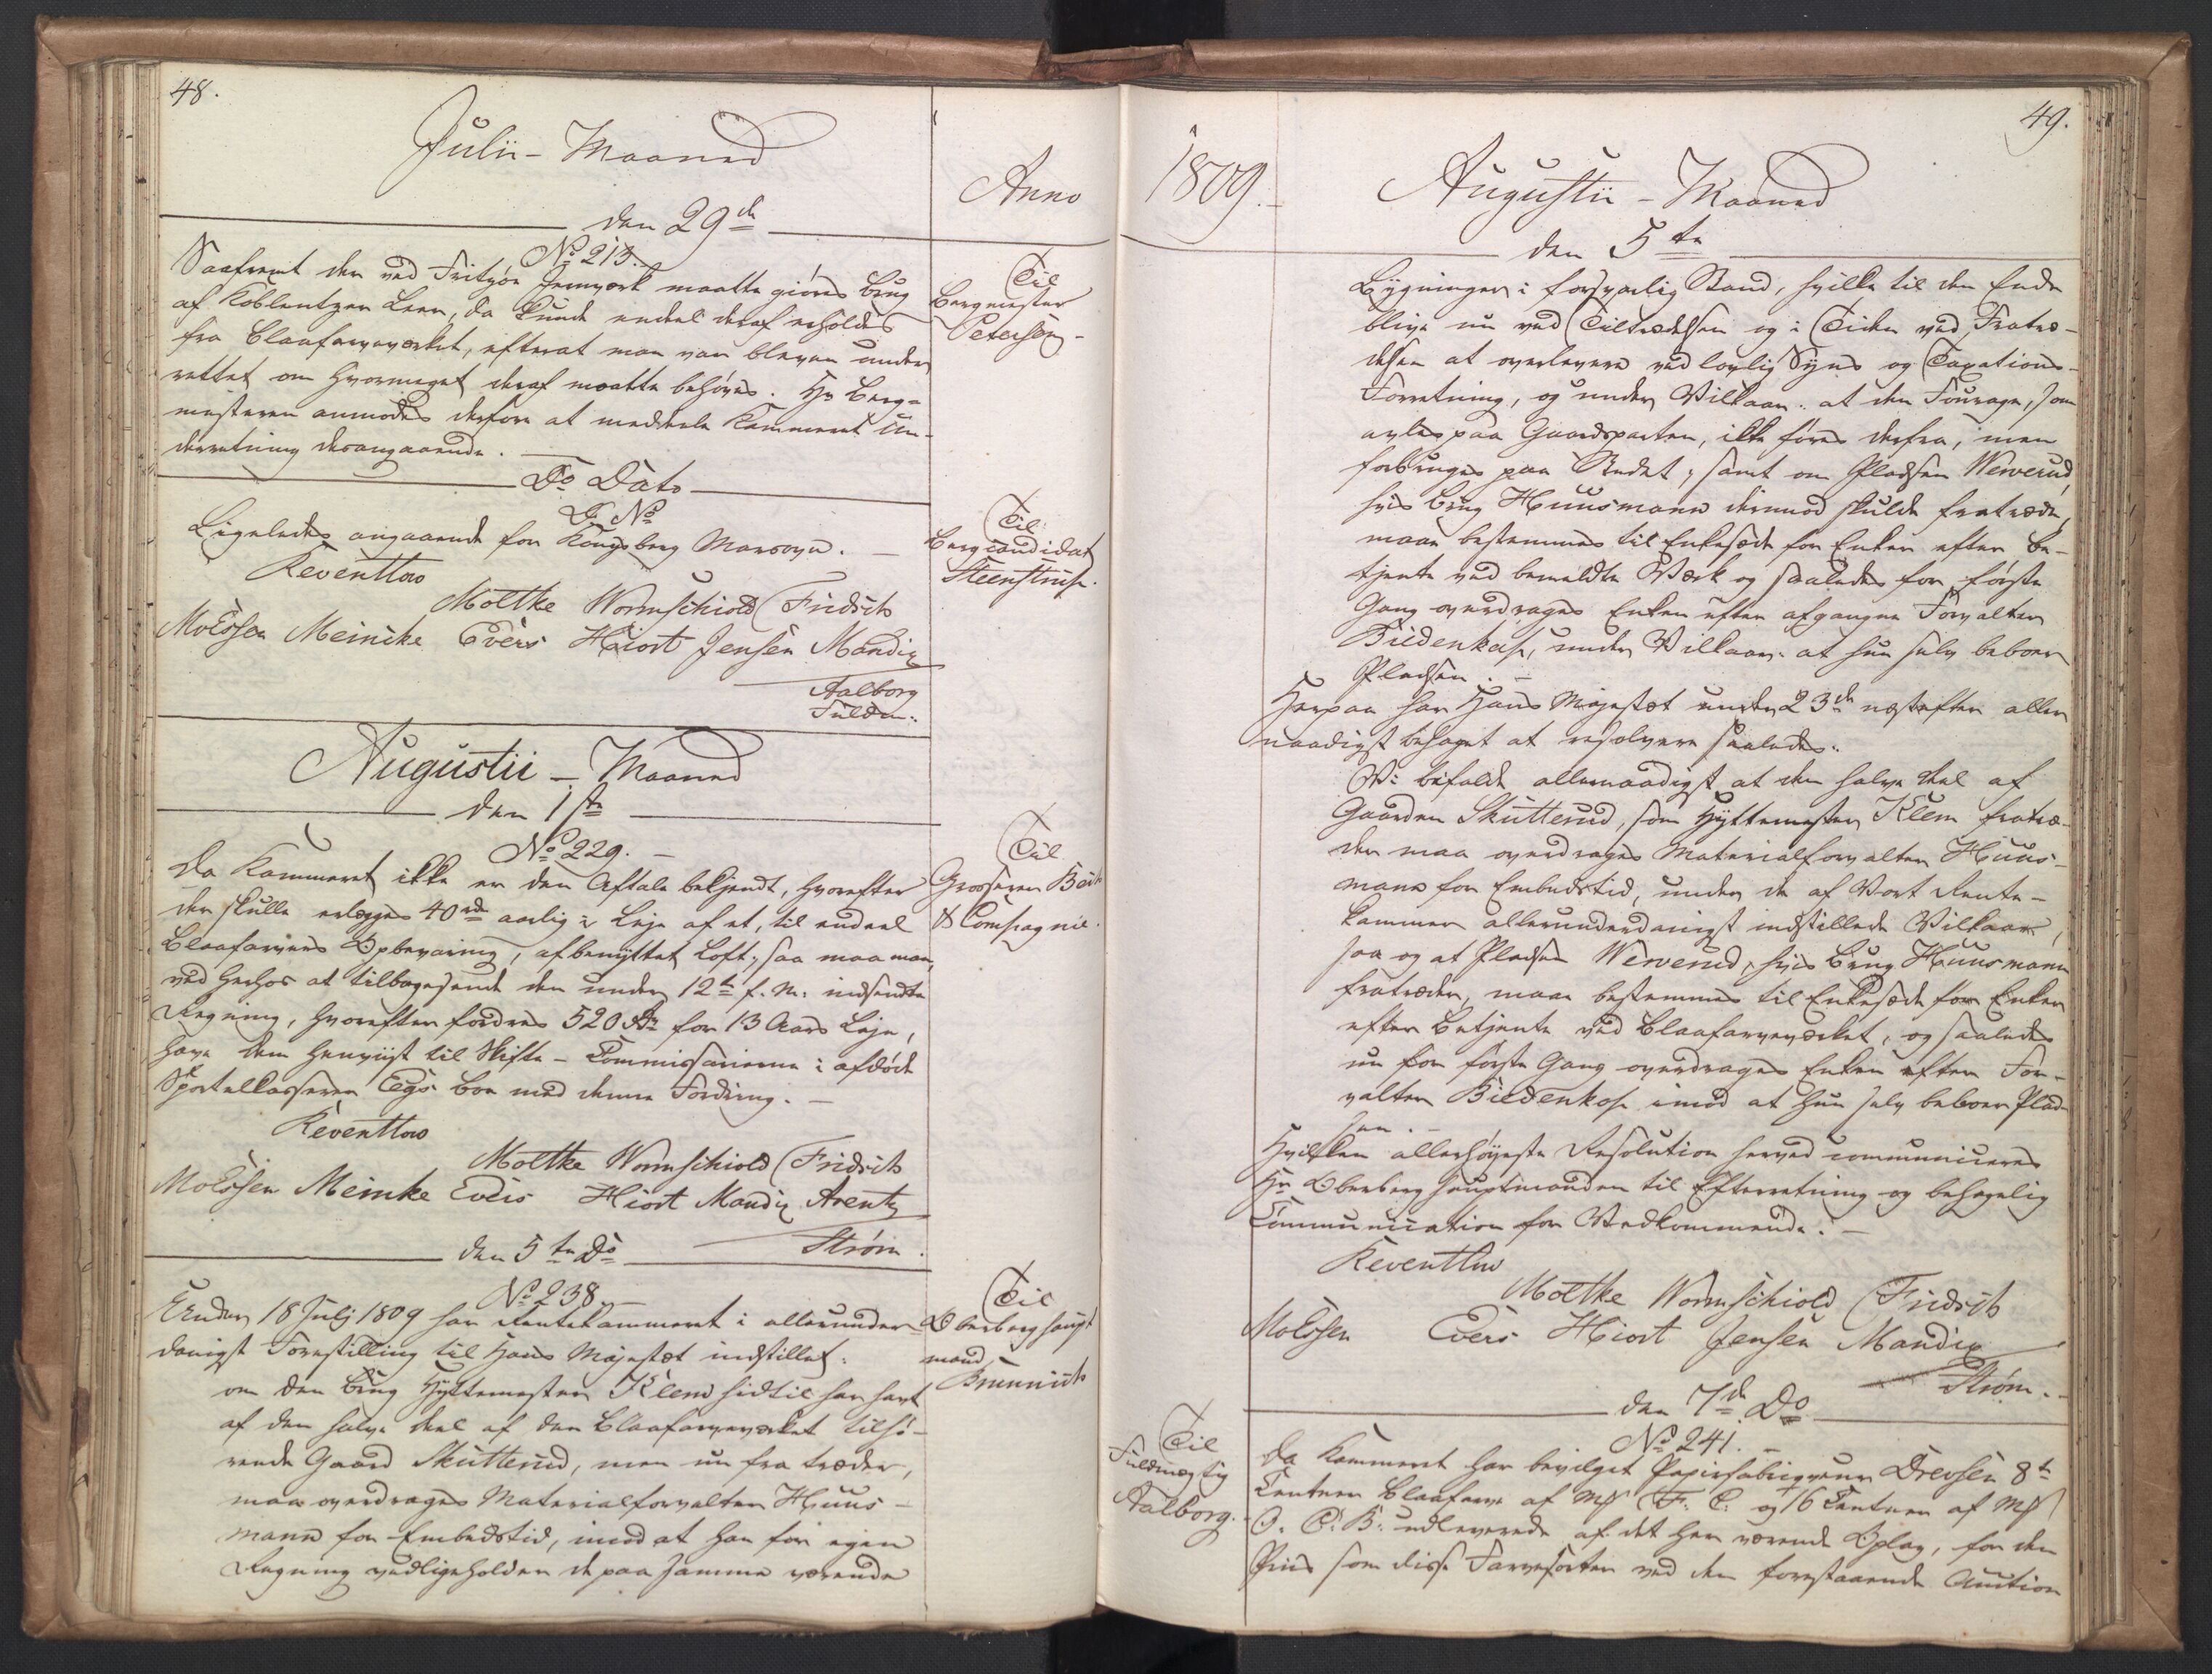 48.
Julii - Maaned
Anno
den 29de
No 213.
Til
Bergmester
Petersen -
Saafremt der ved Fritzøe Jernverk maatte giøres Brug
af Koblentzer Leer, da kunde endeel deraf erholdes
fra Blaafarveverket, efterat man var bleven under
rettet om hvormeget deraf maatte behøves. Hr Berg-
mesteren anmodes derfore at meddele Kammeret Un-
derretning desangaaende.
Do Dato
J. No
Til
Bergcandidat
Steenstrup.
Ligeledes angaaende for Kongsberg Marsovn. -
Reventlow
Moltke Wormschiold Fridrich
Mölsen Meincke Evers Hiort Jensen Mandix
Aalborg
Fuldm:
Augustii - Maaned
den 1ste
No 229. -
Til
Grosserer Beck
& Compagnie.
Da Kammeret ikke er den Aftale bekjendt, hvorefter
der skulle erlægges 40 rd aarlig i Leje af et, til endeel
Blaafarvens Opbevaring, afbenyttet Loft; saa maa man,
ved herhos at tilbagesende den under 12te f. M. indsendte
Regning, hvorefter fordres 520 Rd for 13 Aars Leje,
have dem henviist til Skifte-Commissairerne i afdøde
Sportelkasserer Eegs Boe med denne Fordring. -
Reventlow
Moltke Wormschiold Fridrich
Mölsen Meincke Evers Hiort Mandix Arentz
Strøm.
den 5te Do
No 238. -
Til
Oberberghaupt
mand
Brünnich
Under 18 Julj 1809 har Rentekammeret i allerunder-
danigst Forestilling til Hans Majestæt indstillet:
om den Brug Hyttemester Klem hidtil har havt
af den halve Deel af den Blaafarveverket tilhø-
rende Gaard Skutterud, men nu fra træder,
maa overdrages Materialforvalter Huus-
mann for Embedstid, imod at han for egen
Regning vedligeholder de paa samme værende
49.
1809.
Augustii - Maaned
den 5te
Bygninger i forsvarlig Stand, hvilke til den Ende
blive nu ved Tiltrædelsen og i Tiden ved Fratræ-
delsen at overlevere ved lovlig Syns og Taxations-
Forretning, og under Vilkaar: at den Fourage, som
avles paa Gaardsparten, ikke føres derfra, men
forbruges paa Stedet; samt om Pladsen Werverud,
hvis Brug Huusmann derimod skulde fratræde,
maa bestemmes til Enkesæde for Enker efter Be-
tjente ved bemeldte Værk og saaledes for første
Gang overdrages Enken efter afgangne Forvalter
Biedenkap, under Vilkaar: at hun selv beboer
Pladsen. -
Herpaa har Hans Majestæt under 23de næstefter aller
naadigst behaget at resolvere saaledes:
Vi befalde allernaadigst at den halve Deel af
Gaarden Skutterud, som Hyttemester Klem fratræ-
der maa overdrages Materialforvalter Huus-
mann for Embedstid, under de af Vort Rente-
kammer allerunderdanigst indstillede Vilkaar,
saa og at Pladsen Werverud, hvis Brug Huusmann
fratræder, maa bestemmes til Enkesæde for Enker
efter Betjente ved Blaafarveverket, og saaledes
nu for første Gang overdrages Enken efter For-
valter Biedenkap imod at hun selv beboer Plad-
sen. -
Hvilken allerhøyeste Resolution herved communiceres
Hr Oberberghauptmanden til Efterretning og behagelig
Communication for Vedkommende. -
Reventlow
Moltke Wormschiold Fridrich
Mölsen Evers Hiort Jensen Mandix
Strøm.
den 7de Do
No 241. -
Til
Fuldmægtig
Aalborg.
Da Kammeret har bevilget Papirfabriqveur Drevsen 8te
Centner Blaafarve af Mk F. C. og 16 Centner af Mk
O. C. B. udleverede af det her værende Oplag, for den
Priis som disse Farvesorter ved den forestaaende Auction